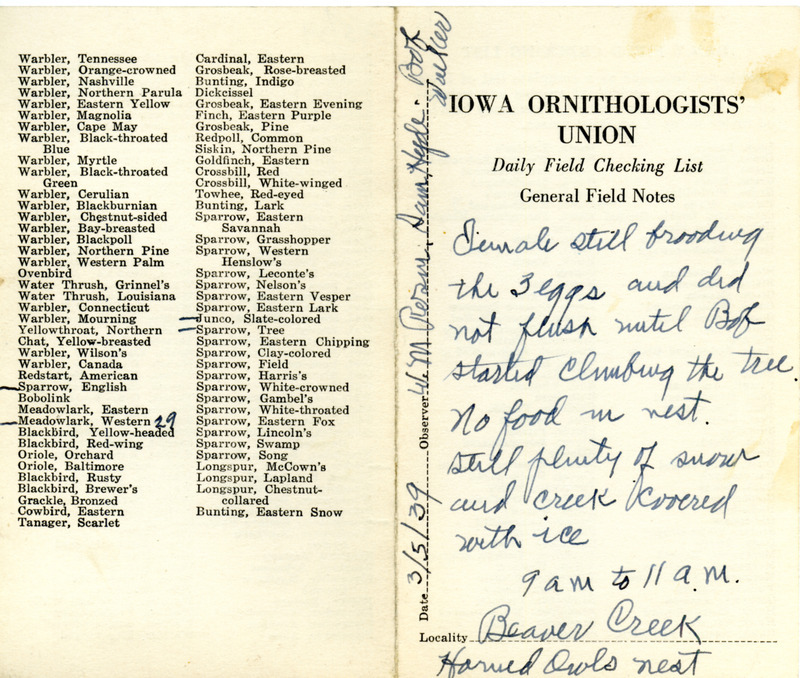 Warbler, Tennessee
Warbler, Orange-crowned
Warbler, Nashville
Warbler, Northern Parula
Warbler, Eastern Yellow
Warbler, Magnolia
Warbler, Cape May
Warbler, Black-throated
Blue
Warbler, Myrtle
Warbler, Black-throated
Green
Warbler, Cerulian
Warbler, Blackburnian
Warbler, Chestnut-sided
Warbler, Bay-breasted
Warbler, Blackpoll
Warbler, Northern Pine
Warbler, Western Palm
Ovenbird
Water Thrush, Grinnel's
Water Thrush, Louisiana
Warbler, Connecticut
Warbler, Mourning
Yellowthroat, Northern
Chat, Yellow-breasted
Warbler, Wilson's
Warbler, Canada
Redstart, American
Sparrow, English
Bobolink
Meadowlark, Eastern
Meadowlark, Western 29
Blackbird, Yellow-headed
Blackbird, Red-wing
Oriole, Orchard
Oriole, Baltimore
Blackbird, Rusty
Blackbird, Brewer's
Grackle, Bronzed
Cowbird, Eastern
Tanager, Scarlet
Cardinal, Eastern
Grosbeak, Rose-breasted
Bunting, Indigo
Dickcissel
Grosbeak, Eastern Evening
Finch, Eastern Purple
Grosbeak, Pine
Redpoll, Common
Siskin, Northern Pine
Goldfinch, Eastern
Crossbill, Red
Crossbill, White-winged
Towhee, Red-eyed
Bunting, Lark
Sparrow, Eastern
Savannah
Sparrow, Grasshopper
Sparrow, Western
Henslow's
Sparrow, Leconte's
Sparrow, Nelson's
Sparrow, Eastern Vesper
Sparrow, Eastern Lark
Junco, Slate-colored
Sparrow, Tree
Sparrow, Eastern Chipping
Sparrow, Clay-colored
Sparrow, Field
Sparrow, Harris's
Sparrow, White-crowned
Sparrow, Gambel's
Sparrow, White-throated
Sparrow, Eastern Fox
Sparrow, Lincoln's
Sparrow, Swamp
Sparrow, Song
Longspur, McCown's
Longspur, Lapland
Longspur, Chestnut-
collared
Bunting, Eastern Snow
Date 3/5/39 Observer W. M. Rosene. Sam Hyde. Bob
Walker
IOWA ORNITHOLOGISTS'
UNION
Daily Field Checking List
General Field Notes
Female still brooding
the 3 eggs and did
not flush until Bob
started climbing the tree.
No food in nest.
Still plenty of snow
and creek covered
with ice
9 am to 11 a.m.
Locality Beaver Creek
Horned Owls nest